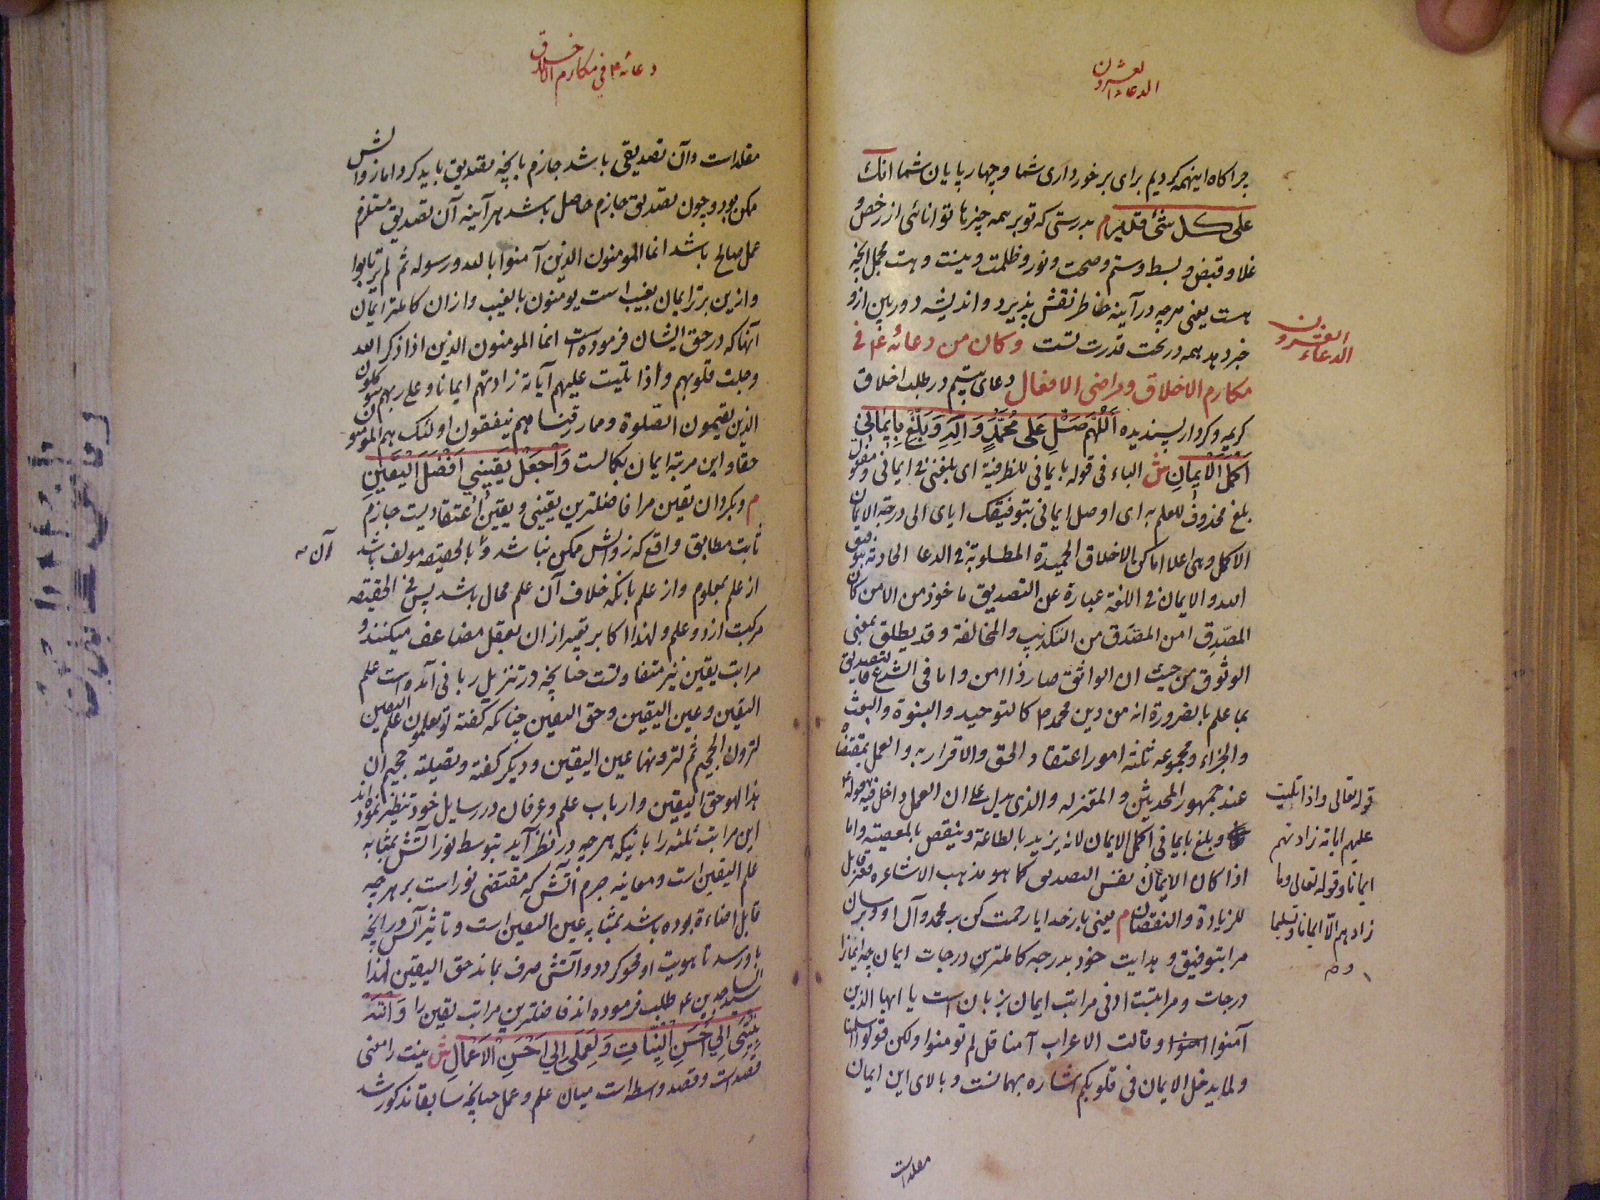 الدعاء العشرون
چراکاه اینهمه کردیم برای برخورداری شما و چهارپایان شما انک
علی کل شئ قدیر م بدرستی که تو بر همه چیزها توانائی از رخص و
غلا و قبض و بسط و سقم و صحت و نور و ظلمت و نیست و هست مجمل انچه
هست یعنی هرچه در آینه خاطر نقش پذیرد و اندیشه دوربین ازو
خبر دهد همه در تحت قدرت تست وکان من دعائه ع فی
الدعاء العشرون
مکارم الاخلاق ومراضی الافعال دعای بیستم در طلب اخلاق
کریمه و کردار پسندیده اَللّهُمَّ صَلِّ عَلی مُحَمَّدٍ وَ آلِهِ وَ بَلِّغْ بِایمانی
اَکْمَلَ الْاِیمانِ ش الباء فی قوله بایمانی للظرفیة ای بلغنی فی ایمانی و مفعول
بلغ محذوف للعلم به ای اوصل ایمانی بتوفیقک ایای الی درجة الایمان
الاکمل وهی اعلا اماکن الاخلاق الحمیدة المطلوبة فی الدعا الحادثة بتوفیق
الله و الایمان فی اللغة عبارة عن التصدیق ماخوذ من الامن کان
المصدِّق امن المصدَّق من التکذیب والمخالفة و قد یطلق بمعنی
الوثوق من حیث ان الواثق صار ذا امن واما فی الشرع فالتصدیق
بما علم بالضرورة انه من دین محمد ص کالتوحید و النبوة والبعث
والجزاء و مجموعه ثلثة امور اعتقاد الحق والاقرار به والعمل بمقتضاه
عند جمهور المحدثین و المعتزله والذی یدل علی ان العمل داخل فیه قوله ع
وبلغ بایمانی اکمل الایمان لانه یزید بالطاعة وینقص بالمعصیته واما
اذا کان الایمان نفس التصدیق کما هو مذهب الاشاعره فغیر قابل
للزیادة والنقصان م یعنی بارخدایا رحمت کن بر محمد وآل او و برسان
مرا بتوفیق و هدایت خود بدرجه کاملترین درجات ایمان چه ایمانرا
درجات و مراتبست ادنی مراتب ایمان بزبان است یا ایها الذین
آمنوا آمنوا و قالت الاعراب آمنا قل لم تومنوا ولکن قولوا اسلمنا
ولما یدخل الایمان فی قلوبکم اشاره بهمانست و بالای این ایمان
قوله تعالی واذا تلیت
علیهم ایاته زادتهم
ایمانا و قوله تعالی وما
زادهم الا ایمانا وتسلیما
مقلد است
دعائه ع فی مکارم الاخلاق
مقلد است وآن تصدیقی باشد جازم بانچه تصدیق باید کرد اما زوالش
ممکن بود وچون تصدیق جازم حاصل باشد هر آینه آن تصدیق مستلزم
عمل صالح باشد انما المومنون الذین آمنوا بالله ورسوله ثم لم یرتابوا
وازین برتر ایمان بغیب است یومنون بالغیب وازان کاملتر ایمان
آنها که در حق ایشان فرموده است انما المومنون الذین اذا ذکر الله
وجلت قلوبهم واذا تلیت علیهم آیاته زادتهم ایمانا وعلی ربهم یتوکلون
الذین یقیمون الصلوة ومما رزقناهم ینفقون اولئک هم المومنون
حقا واین مرتبه ایمان بکمالست وَاجْعَلْ یَقینی اَفْضَلَ الْیَقینِ
م وبکردان یقین مرا فاضلترین یقینی ویقین اعتقادیست جازم
ثابت مطابق واقع که زوالش ممکن نباشد و بالحقیقه مولف باشد
وآن
از علم بمعلوم واز علم بانکه خلاف آن علم محال باشد پس فی الحقیقه
مرکبت از دو علم ولهذا اکابر تعبیر ازان بعقل مضاعف میکنند و
مراتب یقین نیز متفاوتست چنانچه در تنزیل ربانی آمده است علم
الیقین وعین الیقین وحق الیقین چنانکه گفته لو تعلمون علم الیقین
لترون الجحیم ثم لترونها عین الیقین ودیکر گفته وتصلیة جحیم ان
هذا لهو حق الیقین وارباب علم وعرفان در رسایل خود تنظیر نموده اند
این مراتب ثلثه را بانیکه هرچه در نظر آید بتوسط نور آتش بمثابه
علم الیقین است ومعاینه جرم آتش که مقتضی نور است بر هرچه
قابل اضاءة بوده باشد بمثابه عین الیقین است وتاثیر آتش در انچه
باو رسد تا هویت او محو کردد وآتش صرف بماند حق الیقین لهذا
سید الساجدین ع طلب فرموده اند فاضلترین مراتب یقین را وَانْتَهِ
بِنِیَّتی اِلی اَحْسَنِ النِّیّاتِ وَ بِعَمَلی اِلی اَحْسَنِ الْاَعْمالِ ش نیت را معنی
قصد است وقصد واسطه است میان علم وعمل چنانچه سابقا مذکور شد